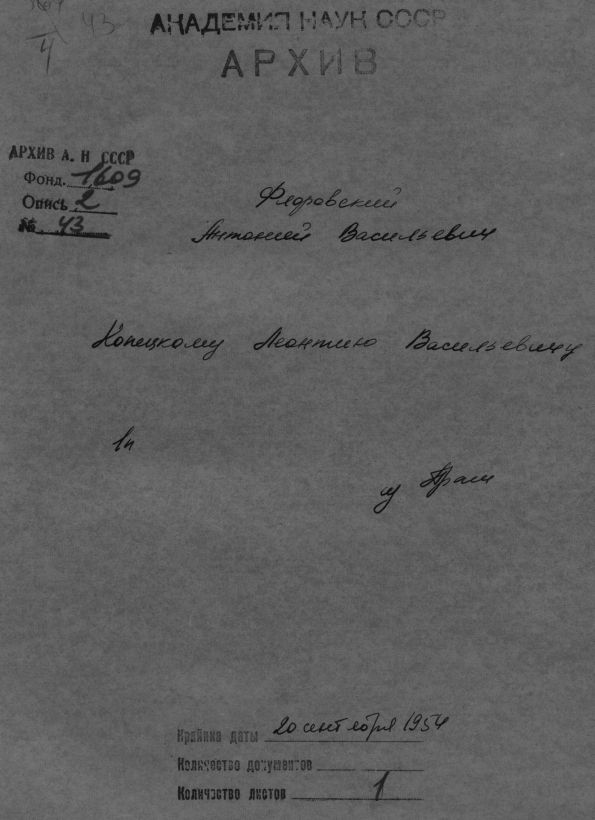 43
4
АКАДЕМИЯ НАУК СССР
АРХИВ
АРХИВ А. Н СССР
Фонд. 1609
Опись 2
№ 43
Флоровский
Антоний Васильевич
Копецкому Леонтию Васильевичу
1п
Крайние даты 20 сентября 1954
Количество документов
Количество листов 1